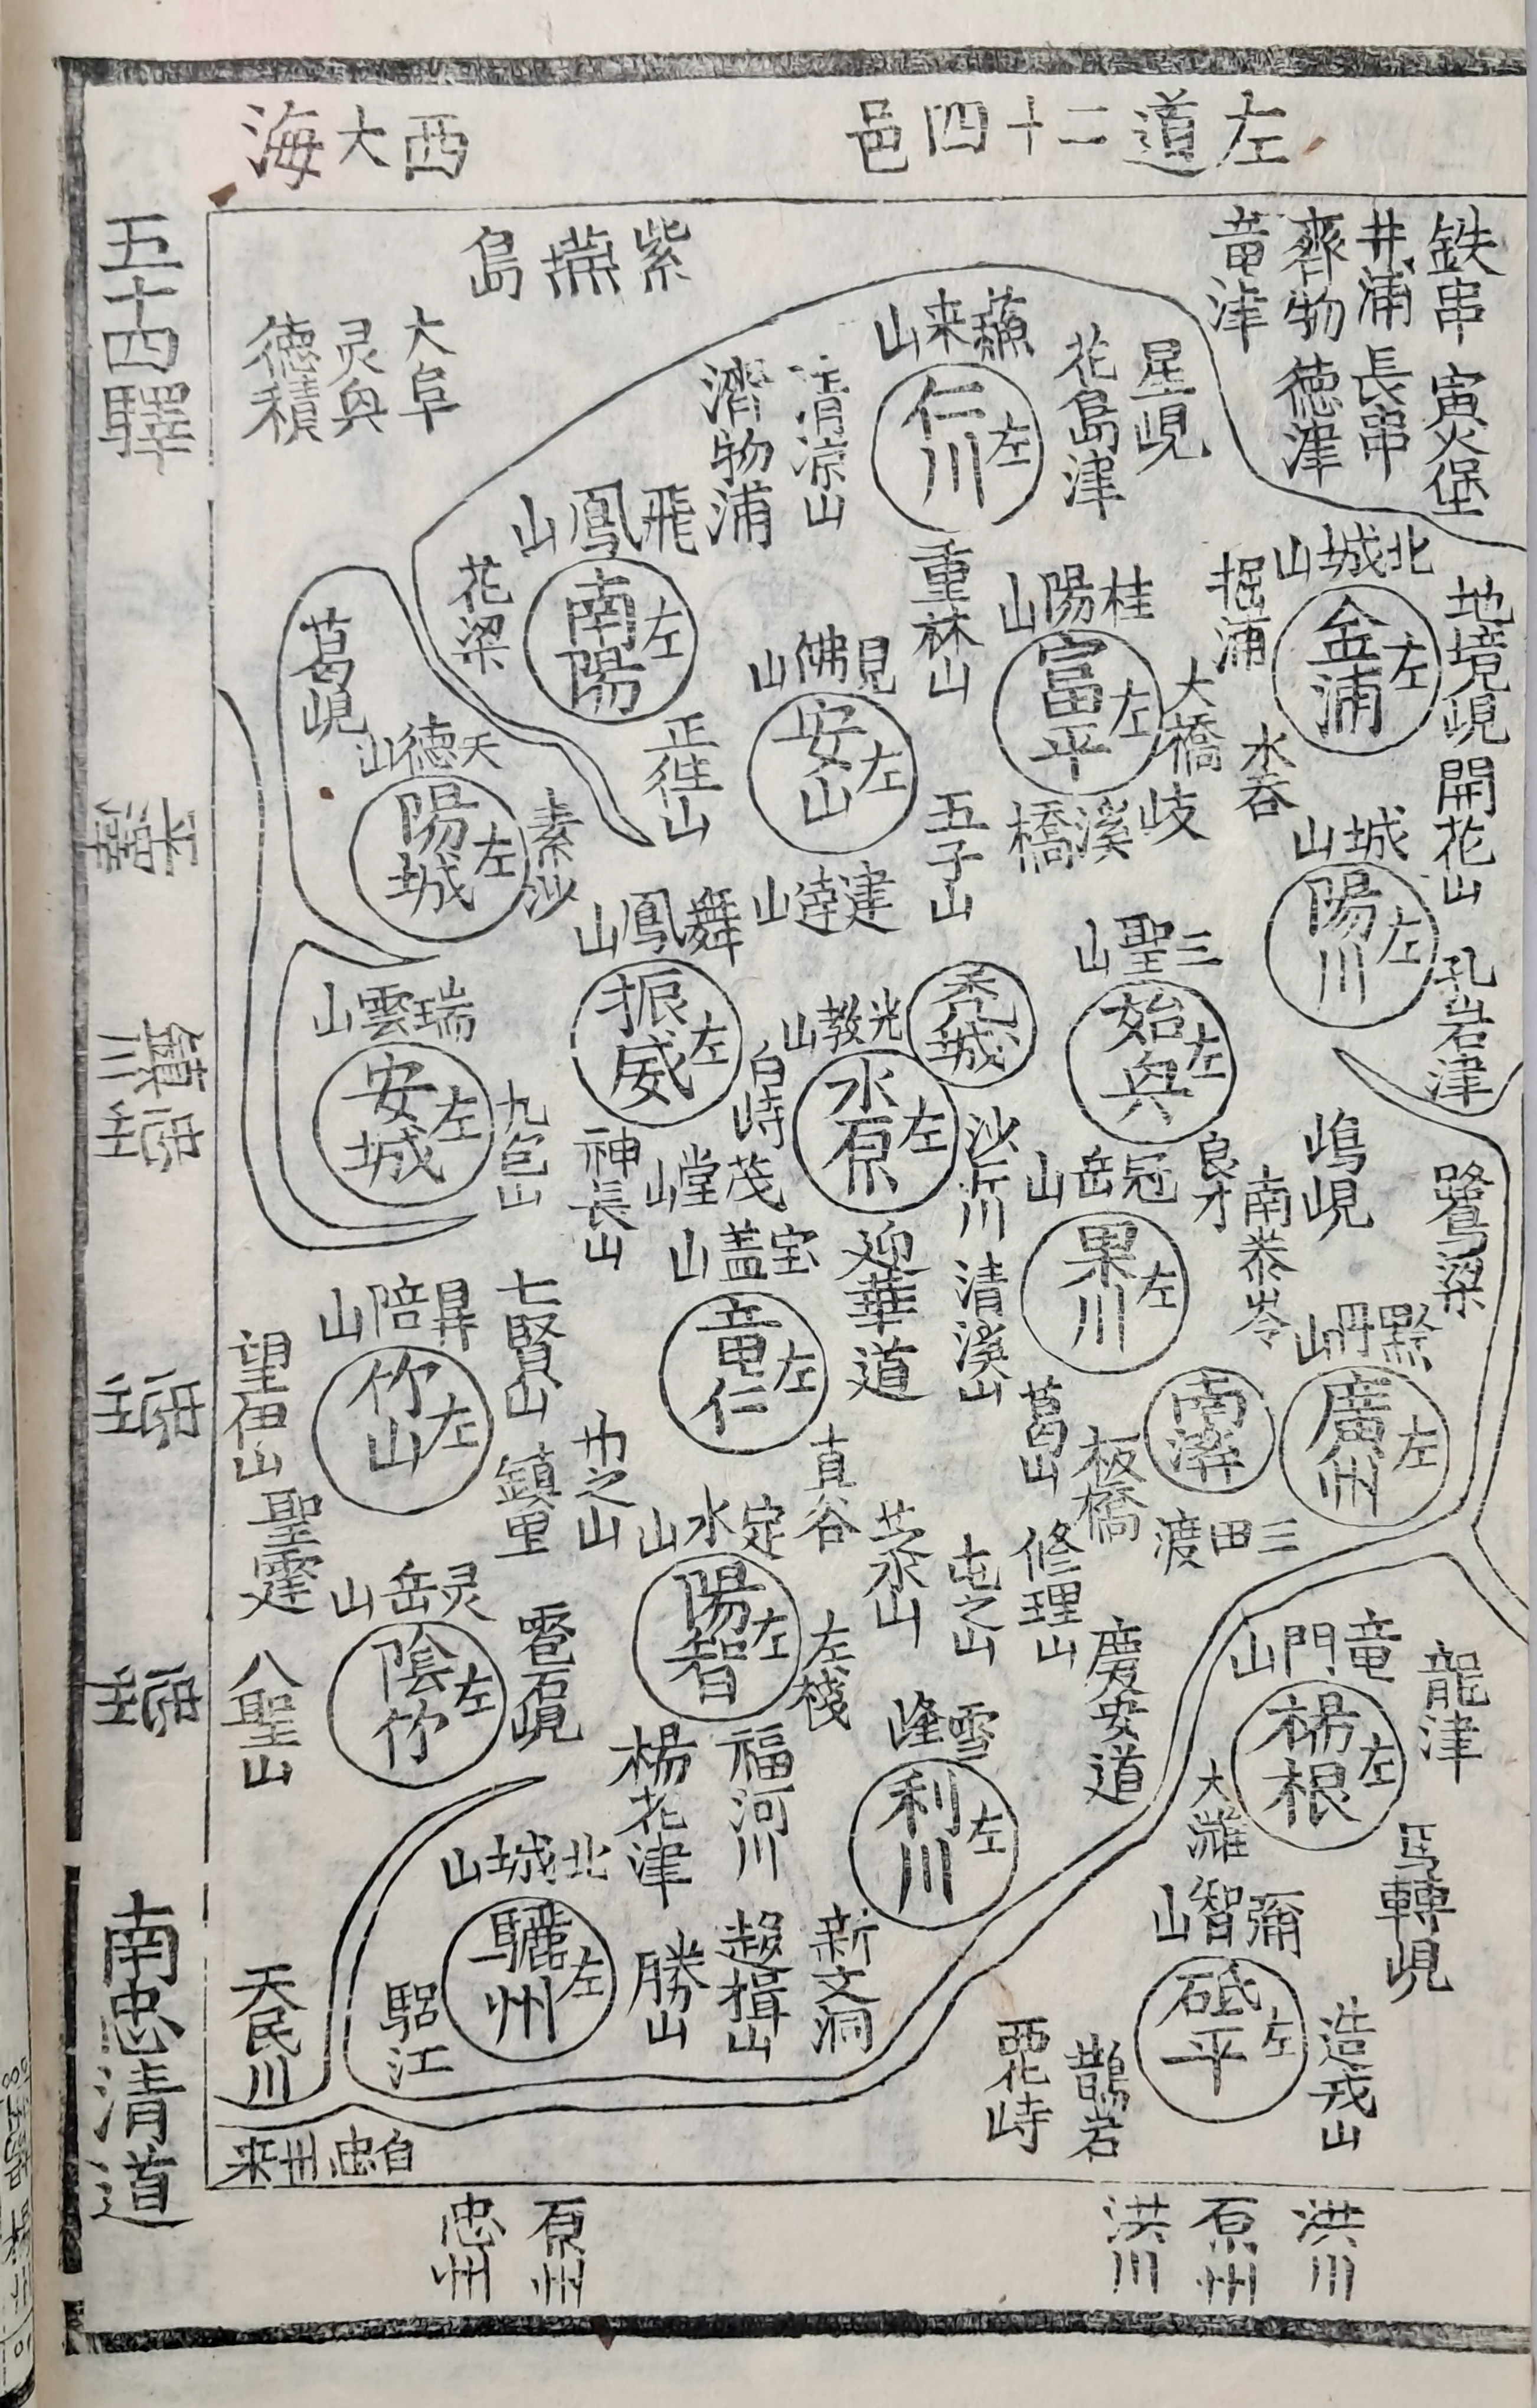 左道二十四邑
西大海
五十四驛
平澤
稷川
忠州
南忠清道
鉄串
寅火堡
井浦
長串
齊物
德津
竜津
紫燕島
大阜
灵興
德積
蘇来山
仁川 左
星峴
花島津
清凉山
濟物浦
飛鳳山
南陽 左
花梁
葛峴
重林山
桂陽山
富平 左
大橋
掘浦
北城山
金浦 左
地境峴
開花山
水呑
見佛山
安山 左
正徃山
天德山
陽城 左
素沙
五子山
岐溪橋
城山
陽川 左
孔岩津
建達山
舞鳳山
振威 左
三聖山
始興 左
秃城
光教山
水原 左
白峙
瑞雲山
安城 左
九包山
神長山
茂堂山
沙斤川
冠岳山
果川 左
良才
南泰岺
鳴峴
鷺梁
宝盖山
竜仁 左
迎華道
清溪山
黔丹山
廣州 左
南漢
七賢山
竹山 左
望伊山
鎮里
葛山
板橋
三田渡
真谷
定水山
陽智 左
左棧
修理山
屯之山
慶安道
聖霆
灵岳山
陰竹 左
八聖山
雪峰
利川 左
福河川
楊花津
竜門山
楊根 左
龍津
大灘
馬轉峴
北城山
驪州 左
勝山
趍揖山
新文洞
驪江
天民川
彌智山
砥平 左
造戎山
鵲岩
栗峙
自忠州来
洪川
原州
洪川
原州
忠州